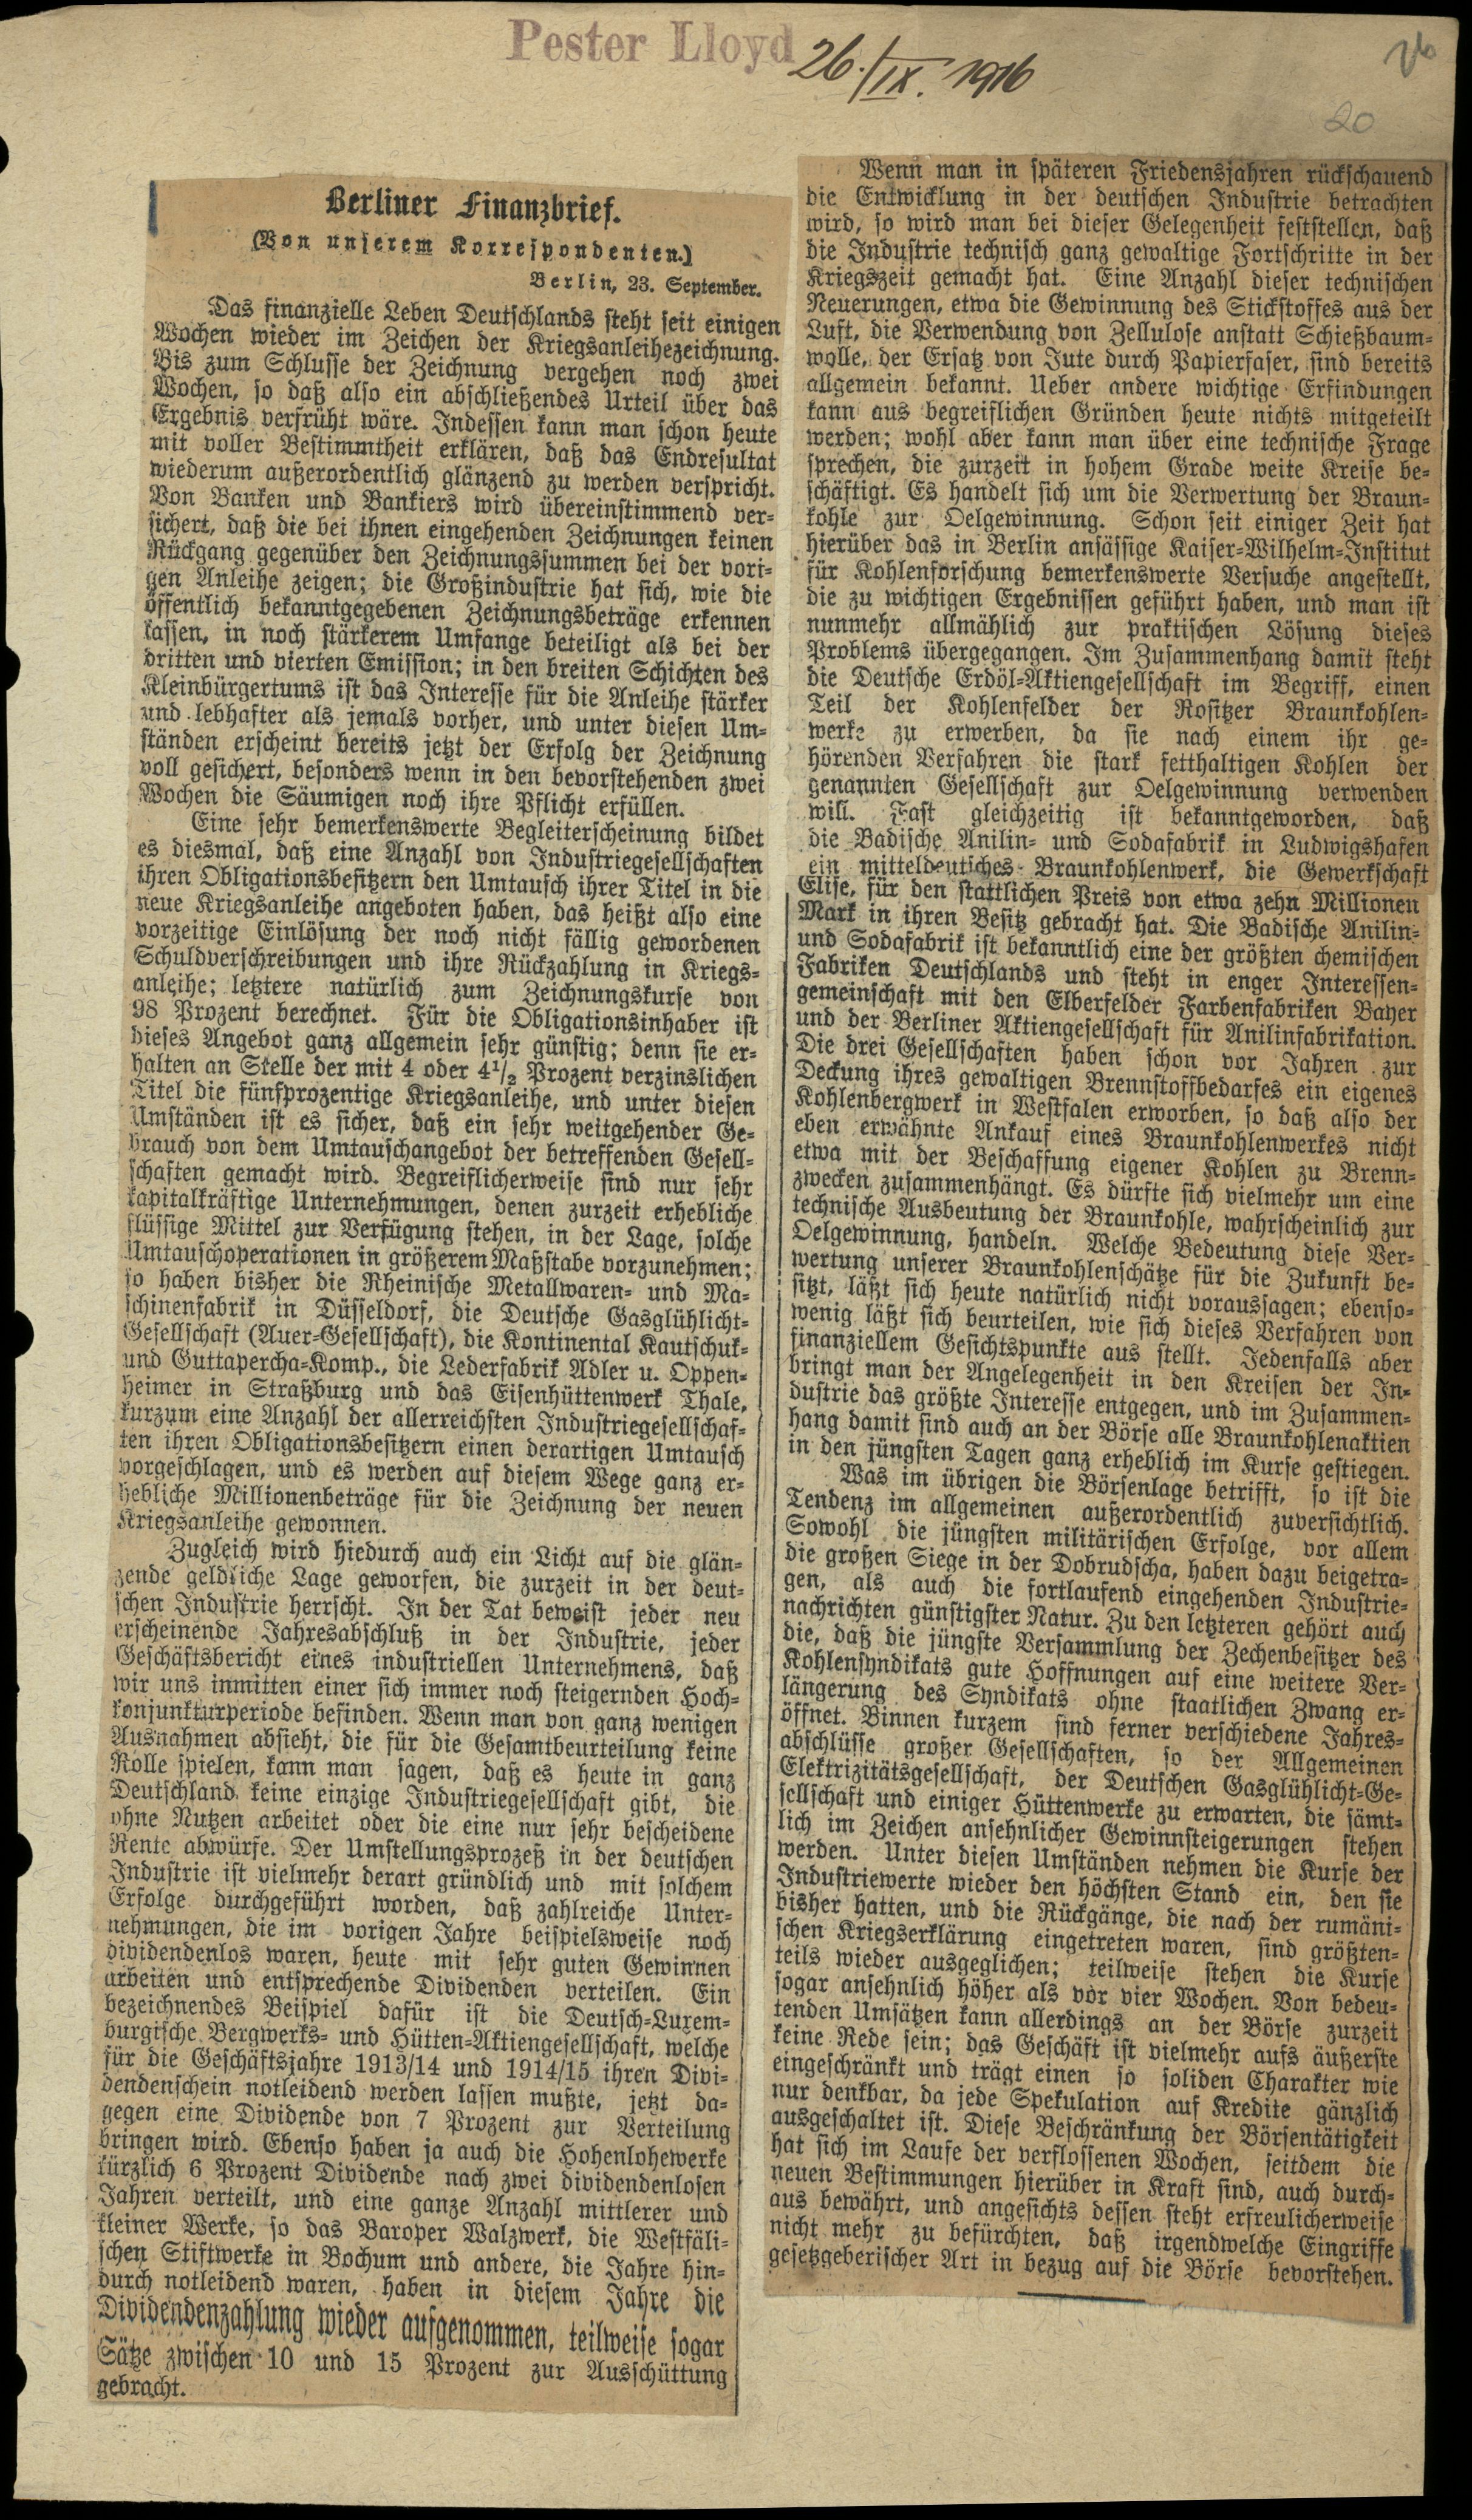 Pester Lloyd
26./IX. 1916
20
Berliner Finanzbrief.
(Von unserem Korrespondenten.)
Berlin, 23. September.
Das finanzielle Leben Deutschlands steht seit einigen
Wochen wieder im Zeichen der Kriegsanleihezeichnung.
Bis zum Schlusse der Zeichnung vergehen noch zwei
Wochen, so daß also ein abschließendes Urteil über das
Ergebnis verfrüht wäre. Indessen kann man schon heute
mit voller Bestimmtheit erklären, daß das Endresultat
wiederum außerordentlich glänzend zu werden verspricht.
Von Banken und Bankiers wird übereinstimmend ver-
sichert, daß die bei ihnen eingehenden Zeichnungen keinen
Rückgang gegenüber den Zeichnungssummen bei der vori-
gen Anleihe zeigen; die Großindustrie hat sich, wie die
öffentlich bekanntgegebenen Zeichnungsbeträge erkennen
lassen, in noch stärkerem Umfange beteiligt als bei der
dritten und vierten Emission; in den breiten Schichten des
Kleinbürgertums ist das Interesse für die Anleihe stärker
und lebhafter als jemals vorher, und unter diesen Um-
ständen erscheint bereits jetzt der Erfolg der Zeichnung
voll gesichert, besonders wenn in den bevorstehenden zwei
Wochen die Säumigen noch ihre Pflicht erfüllen.
Eine sehr bemerkenswerte Begleiterscheinung bildet
es diesmal, daß eine Anzahl von Industriegesellschaften
ihren Obligationsbesitzern den Umtausch ihrer Titel in die
neue Kriegsanleihe angeboten haben, das heißt also eine
vorzeitige Einlösung der noch nicht fällig gewordenen
Schuldverschreibungen und ihre Rückzahlung in Kriegs-
anleihe; letztere natürlich zum Zeichnungskurse von
98 Prozent berechnet. Für die Obligationsinhaber ist
dieses Angebot ganz allgemein sehr günstig; denn sie er-
halten an Stelle der mit 4 oder 4½ Prozent verzinslichen
Titel die fünfprozentige Kriegsanleihe, und unter diesen
Umständen ist es sicher, daß ein sehr weitgehender Ge-
brauch von dem Umtauschangebot der betreffenden Gesell-
schaften gemacht wird. Begreiflicherweise sind nur sehr
kapitalkräftige Unternehmungen, denen zurzeit erhebliche
flüssige Mittel zur Verfügung stehen, in der Lage, solche
Umtauschoperationen in größerem Maßstabe vorzunehmen;
so haben bisher die Rheinische Metallwaren- und Ma-
schinenfabrik in Düsseldorf, die Deutsche Gasglühlicht-
Gesellschaft (Auer-Gesellschaft), die Kontinental Kautschuk-
und Guttapercha-Komp., die Lederfabrik Adler u. Oppen-
heimer in Straßburg und das Eisenhüttenwerk Thale,
kurzum eine Anzahl der allerreichsten Industriegesellschaf-
ten ihren Obligationsbesitzern einen derartigen Umtausch
vorgeschlagen, und es werden auf diesem Wege ganz er-
hebliche Millionenbeträge für die Zeichnung der neuen
Kriegsanleihe gewonnen.
Zugleich wird hiedurch auch ein Licht auf die glän-
zende geldliche Lage geworfen, die zurzeit in der deut-
schen Industrie herrscht. In der Tat beweist jeder neu
erscheinende Jahresabschluß in der Industrie, jeder
Geschäftsbericht eines industriellen Unternehmens, daß
wir uns inmitten einer sich immer noch steigernden Hoch-
konjunkturperiode befinden. Wenn man von ganz wenigen
Ausnahmen absieht, die für die Gesamtbeurteilung keine
Rolle spielen, kann man sagen, daß es heute in ganz
Deutschland keine einzige Industriegesellschaft gibt, die
ohne Nutzen arbeitet oder die eine nur sehr bescheidene
Rente abwürfe. Der Umstellungsprozeß in der deutschen
Industrie ist vielmehr derart gründlich und mit solchem
Erfolge durchgeführt worden, daß zahlreiche Unter-
nehmungen, die im vorigen Jahre beispielsweise noch
dividendenlos waren, heute mit sehr guten Gewinnen
arbeiten und entsprechende Dividenden verteilen. Ein
bezeichnendes Beispiel dafür ist die Deutsch-Luxem-
burgische Bergwerks- und Hütten-Aktiengesellschaft, welche
für die Geschäftsjahre 1913/14 und 1914/15 ihren Divi-
dendenschein notleidend werden lassen mußte, jetzt da-
gegen eine Dividende von 7 Prozent zur Verteilung
bringen wird. Ebenso haben ja auch die Hohenlohewerke
kürzlich 6 Prozent Dividende nach zwei dividendenlosen
Jahren verteilt, und eine ganze Anzahl mittlerer und
kleiner Werke, so das Baroper Walzwerk, die Westfäli-
schen Stiftwerke in Bochum und andere, die Jahre hin-
durch notleidend waren, haben in diesem Jahre die
Dividendenzahlung wieder aufgenommen, teilweise sogar
Sätze zwischen 10 und 15 Prozent zur Ausschüttung
gebracht.
Wenn man in späteren Friedensjahren rückschauend
die Entwicklung in der deutschen Industrie betrachten
wird, so wird man bei dieser Gelegenheit feststellen, daß
die Industrie technisch ganz gewaltige Fortschritte in der
Kriegszeit gemacht hat. Eine Anzahl dieser technischen
Neuerungen, etwa die Gewinnung des Stickstoffes aus der
Luft, die Verwendung von Zellulose anstatt Schießbaum-
wolle, der Ersatz von Jute durch Papierfaser, sind bereits
allgemein bekannt. Ueber andere wichtige Erfindungen
kann aus begreiflichen Gründen heute nichts mitgeteilt
werden; wohl aber kann man über eine technische Frage
sprechen, die zurzeit in hohem Grade weite Kreise be-
schäftigt. Es handelt sich um die Verwertung der Braun-
kohle zur Oelgewinnung. Schon seit einiger Zeit hat
hierüber das in Berlin ansässige Kaiser-Wilhelm-Institut
für Kohlenforschung bemerkenswerte Versuche angestellt,
die zu wichtigen Ergebnissen geführt haben, und man ist
nunmehr allmählich zur praktischen Lösung dieses
Problems übergegangen. Im Zusammenhang damit steht
die Deutsche Erdöl-Aktiengesellschaft im Begriff, einen
Teil der Kohlenfelder der Rositzer Braunkohlen-
werke zu erwerben, da sie nach einem ihr ge-
hörenden Verfahren die stark fetthaltigen Kohlen der
genannten Gesellschaft zur Oelgewinnung verwenden
will. Fast gleichzeitig ist bekanntgeworden, daß
die Badische Anilin- und Sodafabrik in Ludwigshafen
ein mitteldeutsches Braunkohlenwerk, die Gewerkschaft
Elise, für den stattlichen Preis von etwa zehn Millionen
Mark in ihren Besitz gebracht hat. Die Badische Anilin-
und Sodafabrik ist bekanntlich eine der größten chemischen
Fabriken Deutschlands und steht in enger Interessen-
gemeinschaft mit den Elberfelder Farbenfabriken Bayer
und der Berliner Aktiengesellschaft für Anilinfabrikation.
Die drei Gesellschaften haben schon vor Jahren zur
Deckung ihres gewaltigen Brennstoffbedarfes ein eigenes
Kohlenbergwerk in Westfalen erworben, so daß also der
eben erwähnte Ankauf eines Braunkohlenwerkes nicht
etwa mit der Beschaffung eigener Kohlen zu Brenn-
zwecken zusammenhängt. Es dürfte sich vielmehr um eine
technische Ausbeutung der Braunkohle, wahrscheinlich zur
Oelgewinnung, handeln. Welche Bedeutung diese Ver-
wertung unserer Braunkohlenschätze für die Zukunft be-
sitzt, läßt sich heute natürlich nicht voraussagen; ebenso-
wenig läßt sich beurteilen, wie sich dieses Verfahren von
finanziellem Gesichtspunkte aus stellt. Jedenfalls aber
bringt man der Angelegenheit in den Kreisen der In-
dustrie das größte Interesse entgegen, und im Zusammen-
hang damit sind auch an der Börse alle Braunkohlenaktien
in den jüngsten Tagen ganz erheblich im Kurse gestiegen.
Was im übrigen die Börsenlage betrifft, so ist die
Tendenz im allgemeinen außerordentlich zuversichtlich.
Sowohl die jüngsten militärischen Erfolge, vor allem
die großen Siege in der Dobrudscha, haben dazu beigetra-
gen, als auch die fortlaufend eingehenden Industrie-
nachrichten günstigster Natur. Zu den letzteren gehört auch
die, daß die jüngste Versammlung der Zechenbesitzer des
Kohlensyndikats gute Hoffnungen auf eine weitere Ver-
längerung des Syndikats ohne staatlichen Zwang er-
öffnet. Binnen kurzem sind ferner verschiedene Jahres-
abschlüsse großer Gesellschaften, so der Allgemeinen
Elektrizitätsgesellschaft, der Deutschen Gasglühlicht-Ge-
sellschaft und einiger Hüttenwerke zu erwarten, die sämt-
lich im Zeichen ansehnlicher Gewinnsteigerungen stehen
werden. Unter diesen Umständen nehmen die Kurse der
Industriewerte wieder den höchsten Stand ein, den sie
bisher hatten, und die Rückgänge, die nach der rumäni-
schen Kriegserklärung eingetreten waren, sind größten-
teils wieder ausgeglichen; teilweise stehen die Kurse
sogar ansehnlich höher als vor vier Wochen. Von bedeu-
tenden Umsätzen kann allerdings an der Börse zurzeit
keine Rede sein; das Geschäft ist vielmehr aufs äußerste
eingeschränkt und trägt einen so soliden Charakter wie
nur denkbar, da jede Spekulation auf Kredite gänzlich
ausgeschaltet ist. Diese Beschränkung der Börsentätigkeit
hat sich im Laufe der verflossenen Wochen, seitdem die
neuen Bestimmungen hierüber in Kraft sind, auch durch-
aus bewährt, und angesichts dessen steht erfreulicherweise
nicht mehr zu befürchten, daß irgendwelche Eingriffe
gesetzgeberischer Art in bezug auf die Börse bevorstehen.